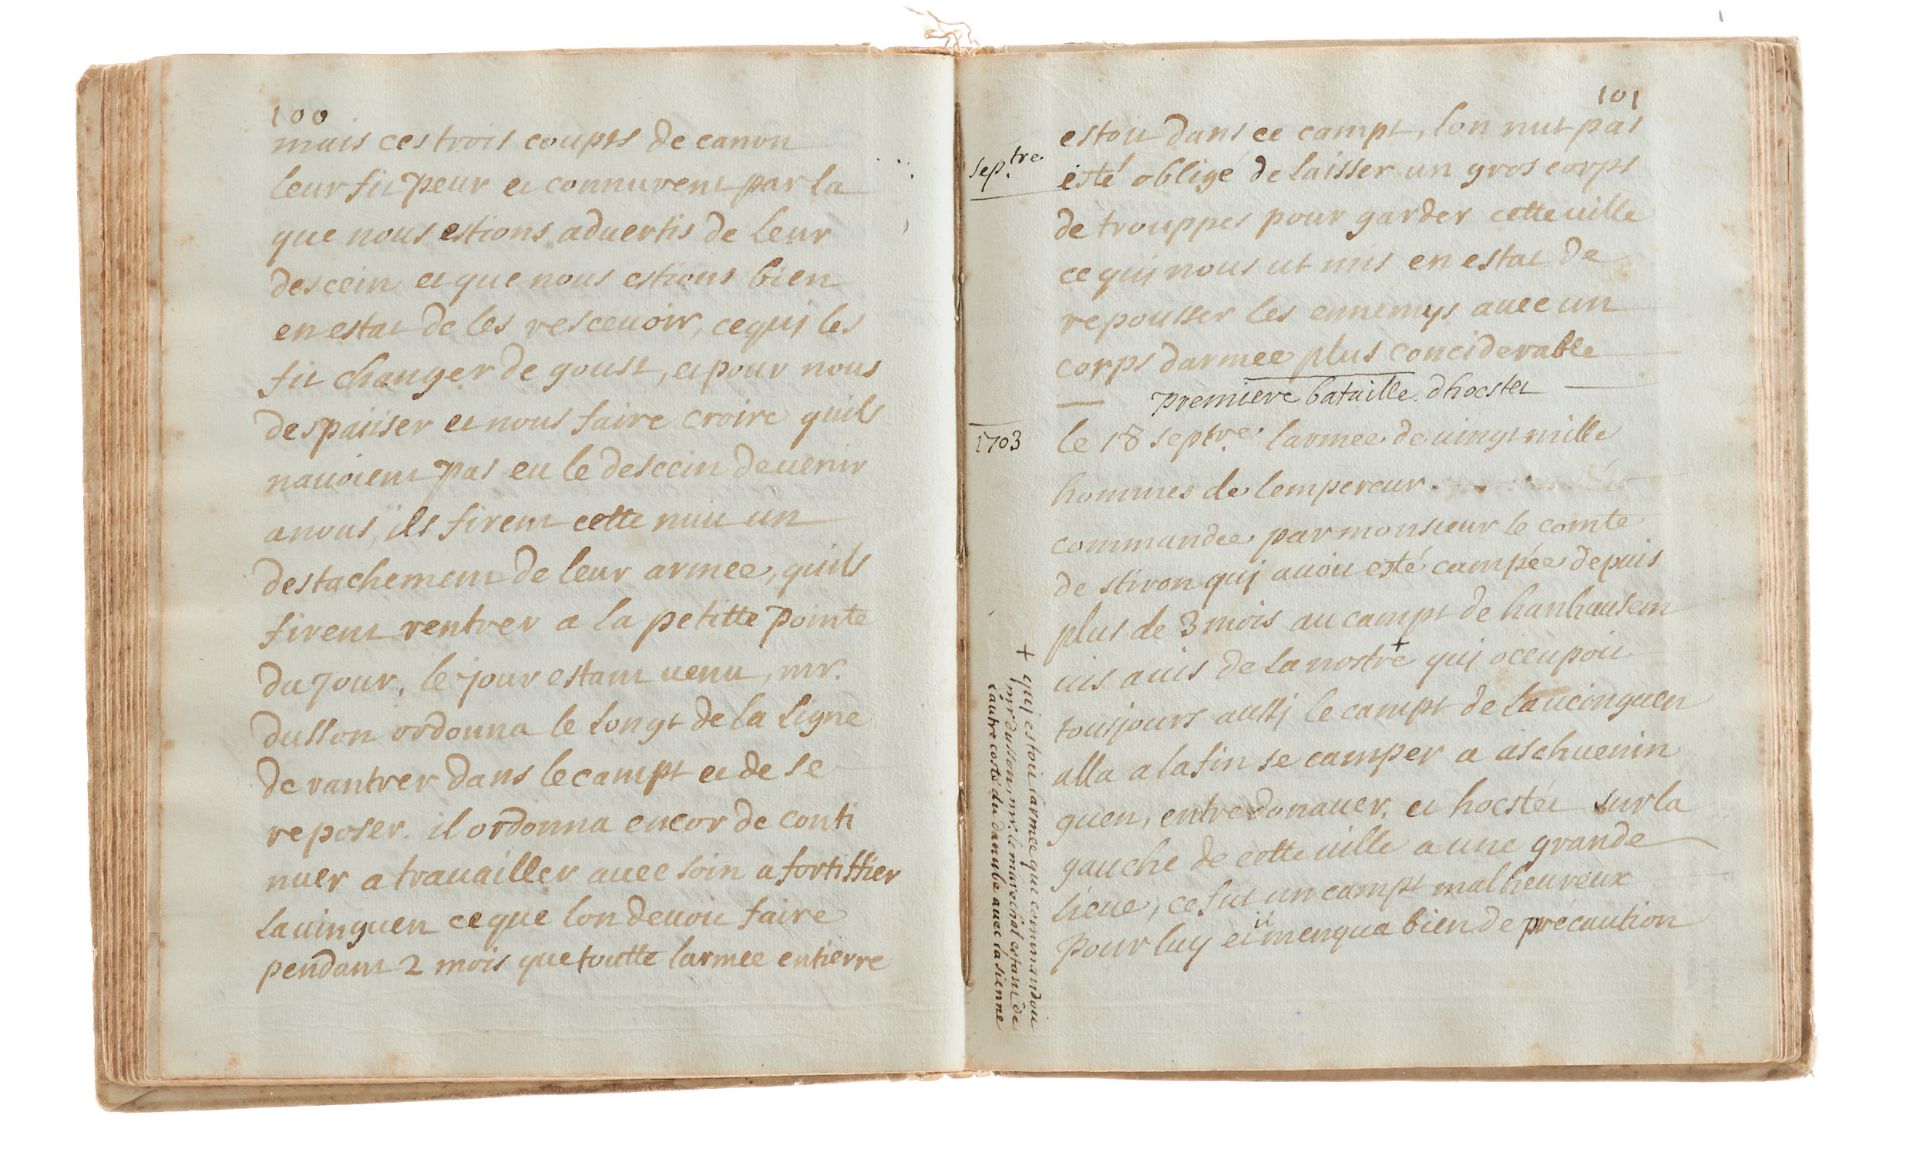 100
mais ces trois coupts de canon
leur fit peur et connurent par la
que nous estions advertis de leur
descein et que nous estions bien
en estat de les rescevoir, cequi les
fit changer de goust, et pour nous
despaiser et nous faire croire quils
navoient pas eu le descein devenir
a nous, ils firent cette nuit un
destachement de leur armée, quils
firent rentrer a la petitte pointe
du jour, le jour estant venu, mr.
dusson ordonna le longt de la ligne
de rantrer dans le campt et de se
reposer. il ordonna encor de conti
nuer a travailler avec soin a fortiffier
lavinguen ce que lon devoit faire
pendant 2 mois que toutte larmee entierre
101
septre.
estoit dans ce campt, lon nut pas
esté obligé de laisser un gros corps
de trouppes pour garder cette ville
ce qui nous ut mis en estat de
repousser les ennemys avec un
corps darmee plus conciderable
premiere bataille dhocstet
1703
le 18 septre. larmee de vingt mille
hommes de lempereur.
commandée par monsieur le comte
de stiron qui avoit esté campée depuis
plus de 3 mois au campt de hanhausem
vis avis de la nostre + qui occupoit
tousjours aussi le campt de lauvinguen
alla a la fin se camper a aschuenin
guen, entre donauer, et hocstet sur la
gauche de cette ville a une grande
lieue, ce fut un campt malheureux
pour luy et il menqua bien de précaution
+ qui estoit larmee que commandoit
mr dusson, mr. le marechal estant de
lautre costé du danube avec la sienne